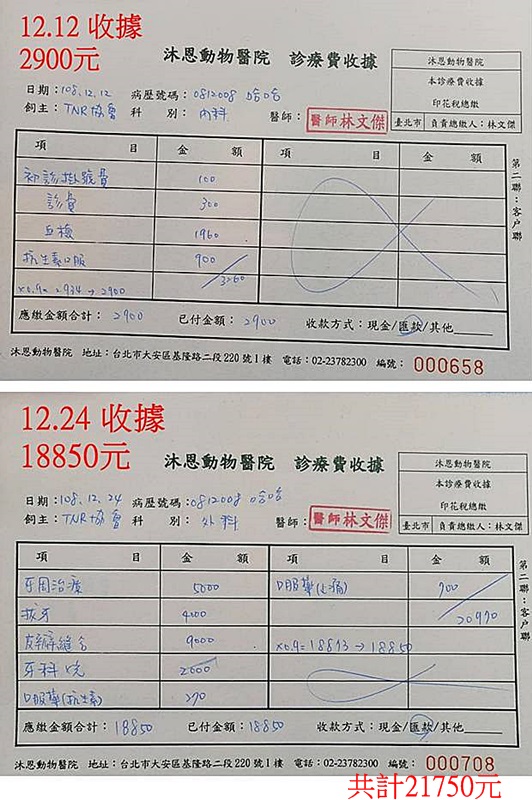 12.12 收據
2900元
沐恩動物醫院 診療費收據
沐恩動物醫院
本診療費收據
印花稅總繳
臺北市 負責總繳人：林文傑
日期：108.12.12 病歷號碼：0812008 哈哈
飼主：TNR協會 科別：內科 醫師：醫師林文傑
項目 金額 項目 金額
初診掛號費 100
診費 300
血檢 1960
抗生素口服 900
3260
x0.9= 2934 → 2900
應繳金額合計：2900 已付金額：2900 收款方式：現金/匯款/其他
第二聯：客戶聯
沐恩動物醫院 地址：台北市大安區基隆路二段220號1樓 電話：02-23782300 編號：000658
12.24 收據
18850元
沐恩動物醫院 診療費收據
沐恩動物醫院
本診療費收據
印花稅總繳
臺北市 負責總繳人：林文傑
日期：108.12.24 病歷號碼：0812008 哈哈
飼主：TNR協會 科別：外科 醫師：醫師林文傑
項目 金額 項目 金額
牙周治療 5000 口服藥(止痛) 700
拔牙 4000 20970
皮瓣縫合 9000 x0.9= 18873 → 18850
牙科 2000
口服藥(抗生素) 270
應繳金額合計：18850 已付金額：18850 收款方式：現金/匯款/其他
第二聯：客戶聯
沐恩動物醫院 地址：台北市大安區基隆路二段220號1樓 電話：02-23782300 編號：000708
共計21750元